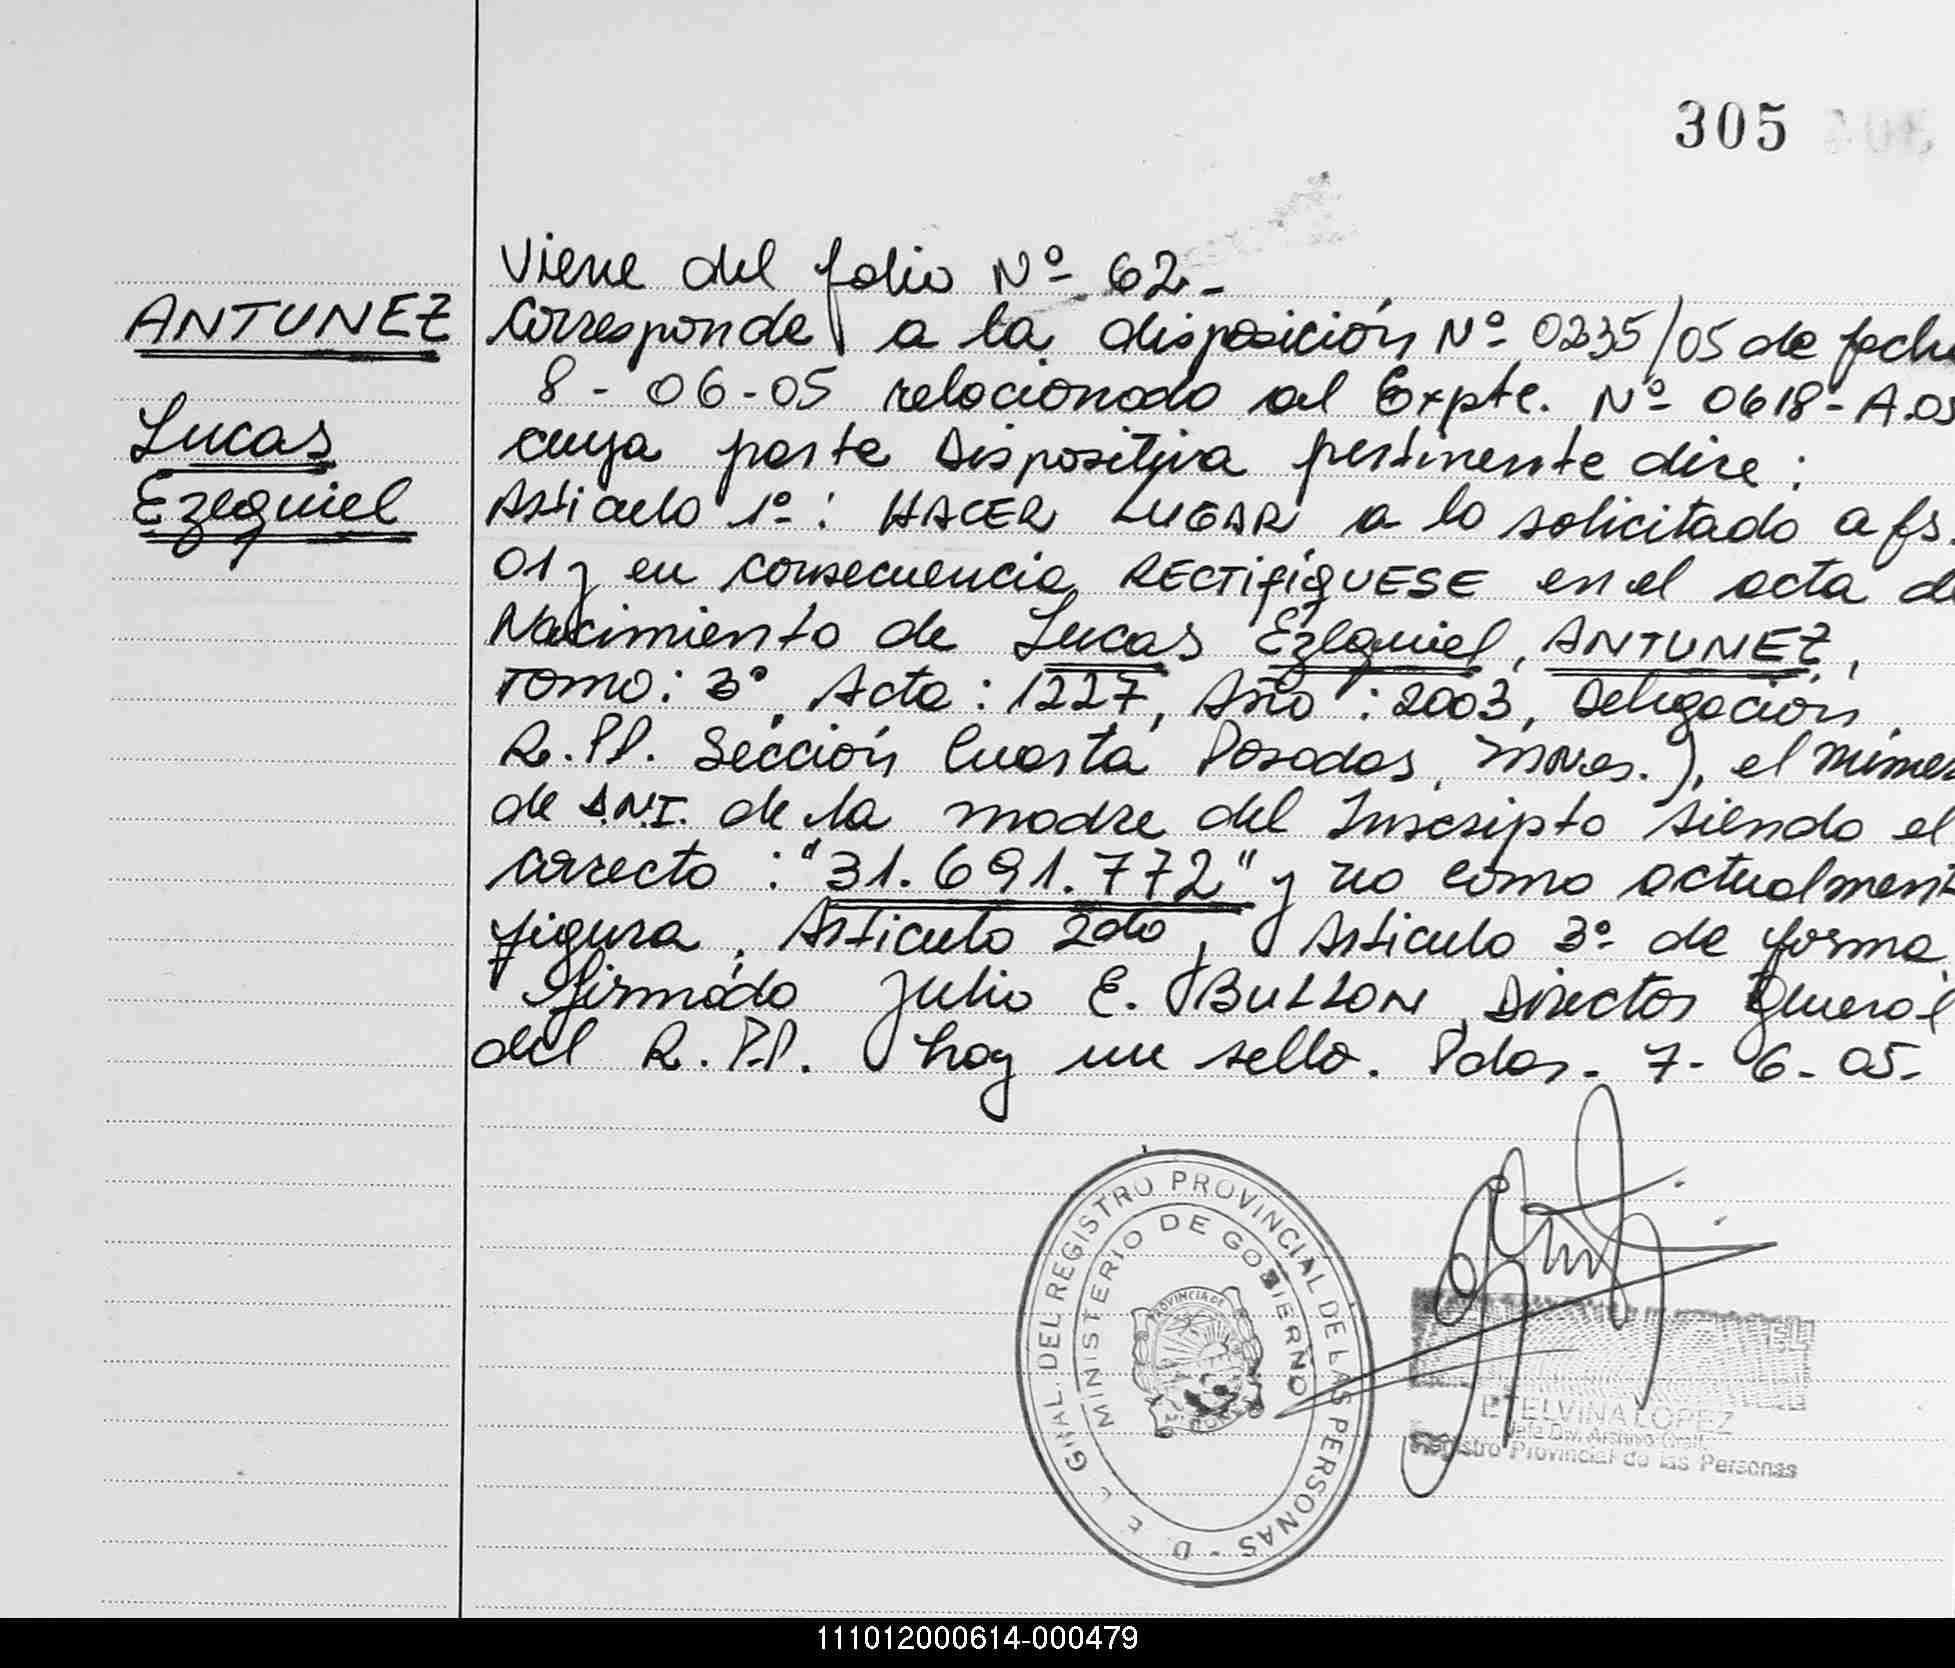 305
Viene del folio Nº 62-
ANTUNEZ
Corresponde a la disposición Nº 0235/05 de fecha
8-06-05 relacionado al Expte. Nº 0618-A-05
Lucas
cuya parte Dispositiva pertinente dice:
Ezequiel
Articulo 1º: HACER LUGAR a lo solicitado a fs.
01 y en consecuencia RECTIFIQUESE en el acta de
Nacimiento de Lucas Ezequiel, ANTUNEZ,
Tomo: 3º, Acta: 1227, Año: 2003, Delegación
R.P.P. Sección Cuarta Posadas, Mnes.), el número
de D.N.I. de la madre del Inscripto siendo el
correcto: "31.691.772" y no como actualment
figura. Articulo 2do, Articulo 3º de forma.
firmado Julio E. BULLON Director General
del R.P.P. hay un sello. Pdas- 7-6-05-
GRAL. DEL REGISTRO PROVINCIAL DE LAS PERSONAS - D E L
MINISTERIO DE GOBIERNO
PROVINCIA DE
ETELVINA LOPEZ
Jefe Div. Archivo Gral.
Registro Provincial de las Personas
111012000614-000479